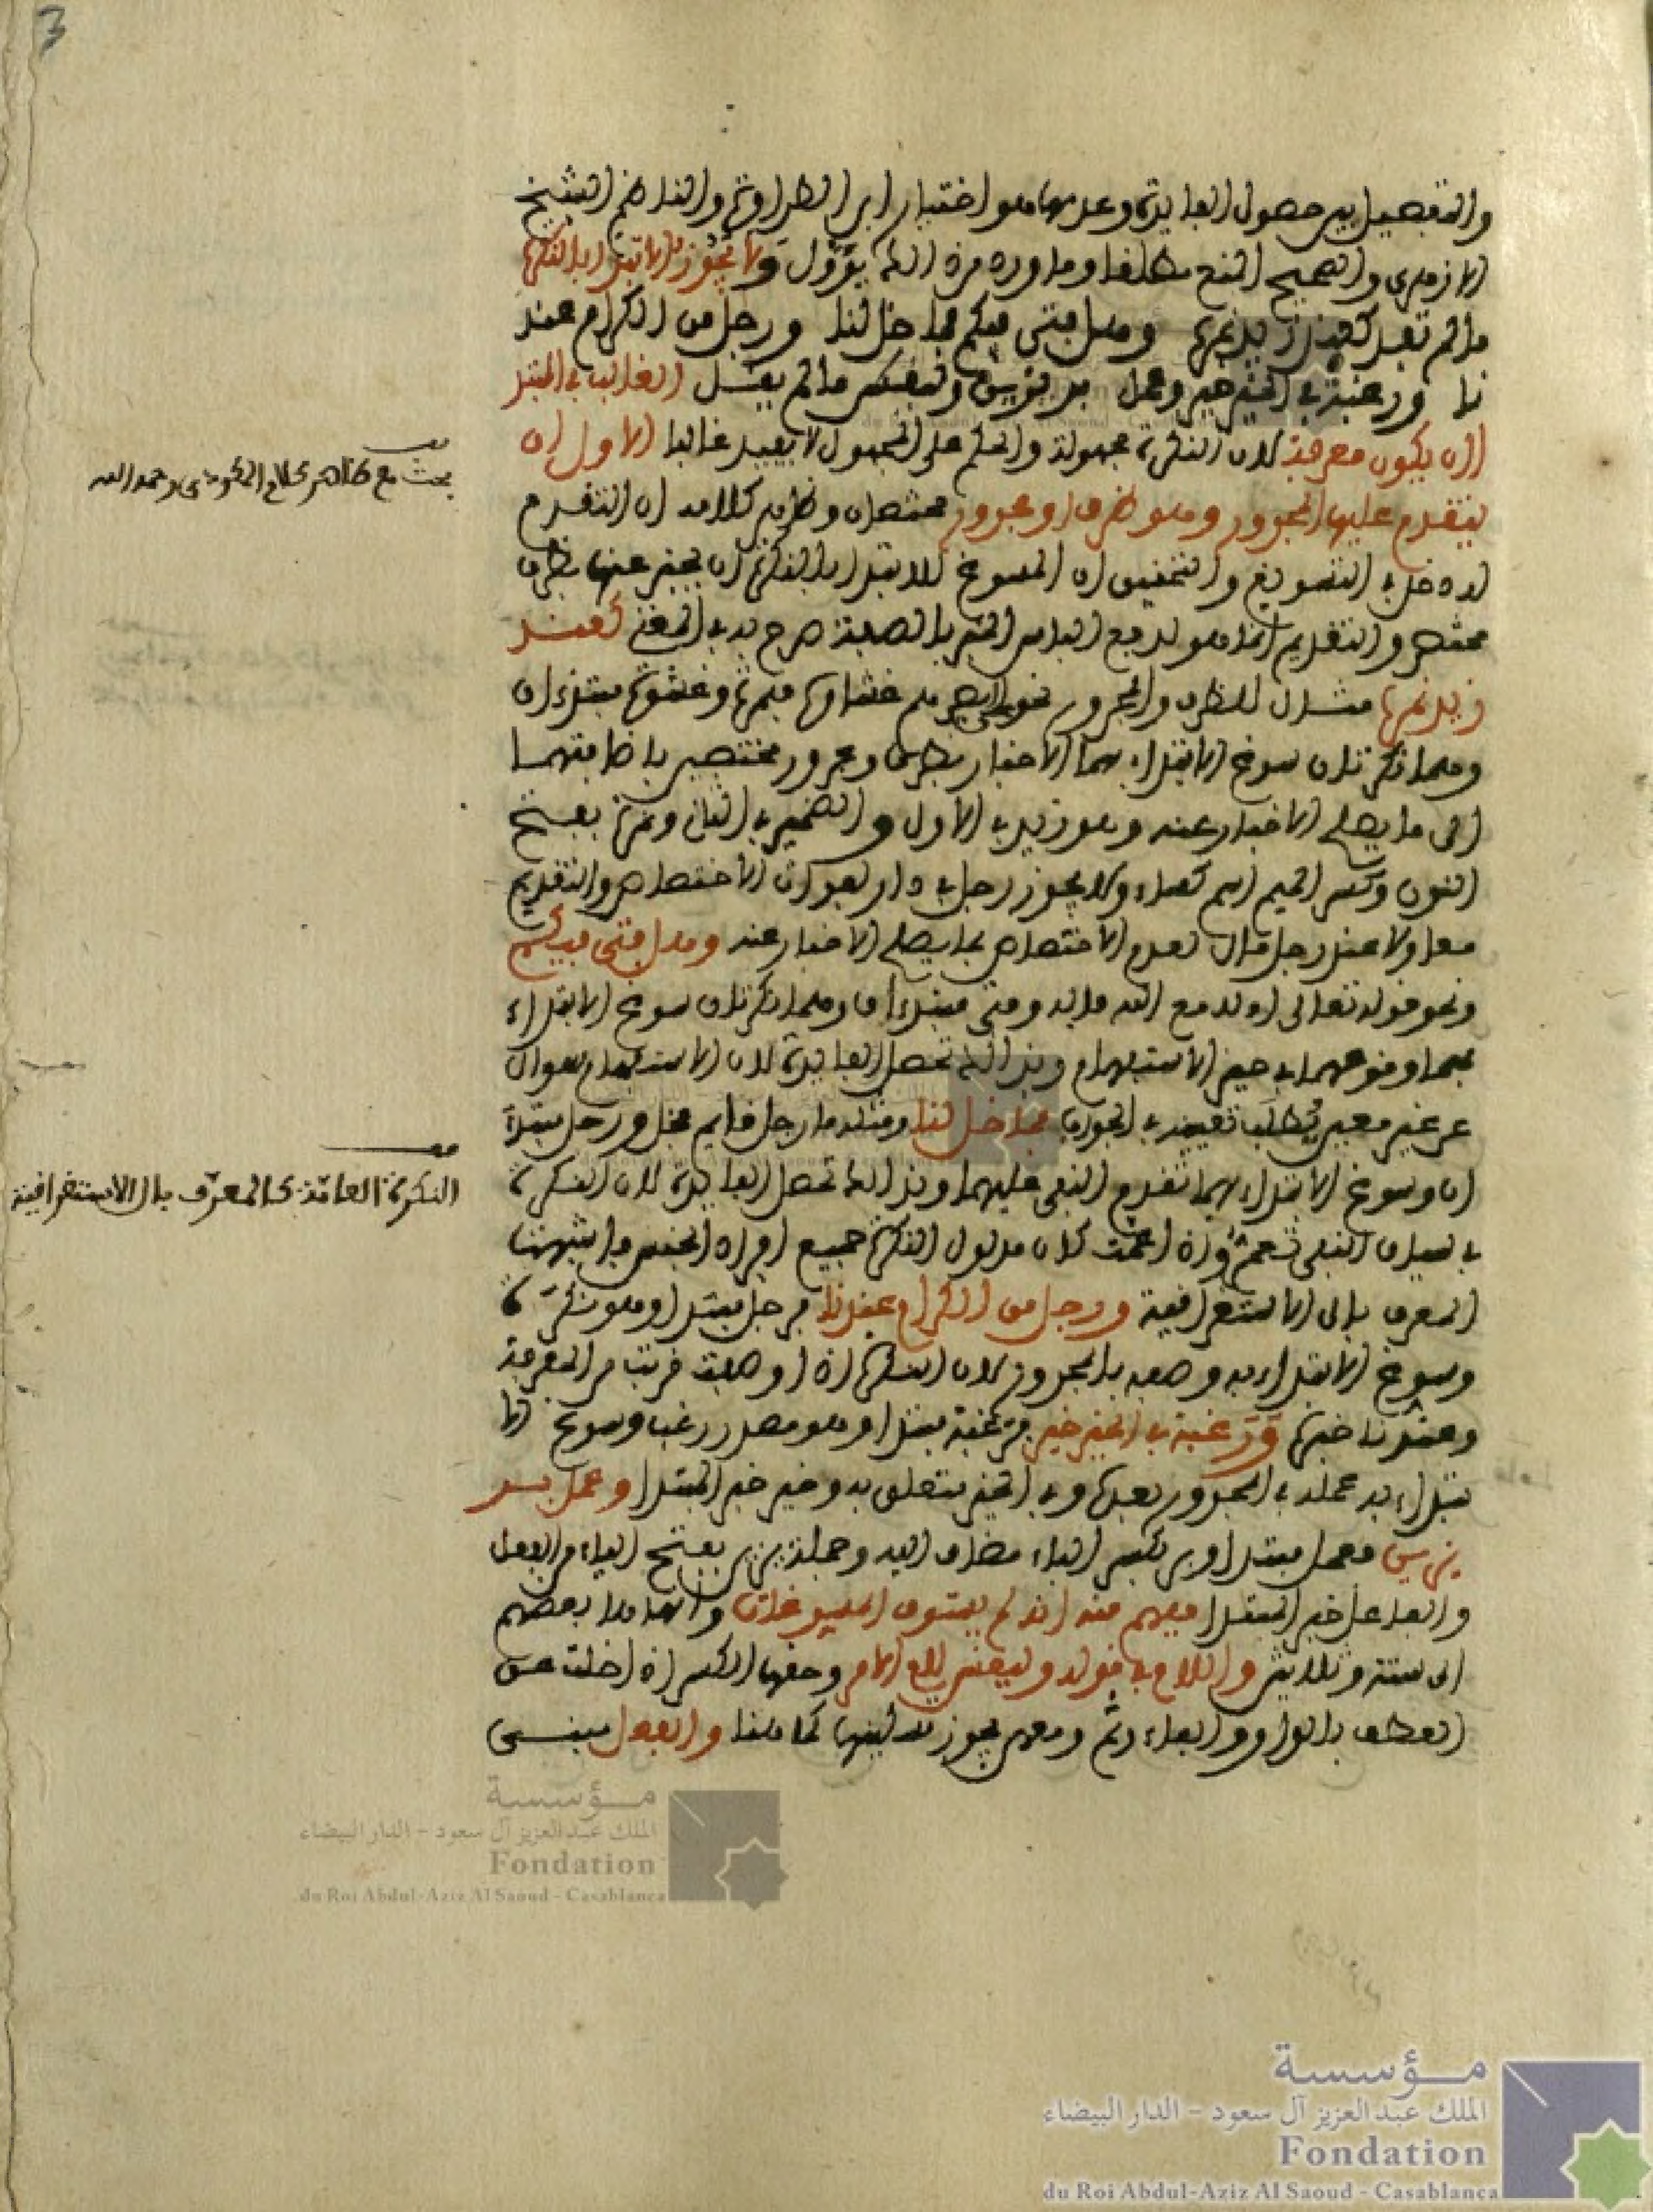 3
والتفصيل بين حصول الفايدة وعدمها وهو اختيار ابن الطراوة والناظم الشيخ
الازهري والصحيح المنع مطلقا وما ورد من ذلك يؤول ولا يجوز الابتدا بالنكرة
ما لم تفد كعند زيد نمرة وهل فتى فيكم فما خل لنا ورجل من الكرام عند
نا ورغبة في الخير خير وعمل بر يزين وليقس ما لم يقل الغالب في المبتدا
ان يكون معرفة لان النكرة مجهولة والحكم على المجهول لا يفيد غالبا الاول ان
يتقدم عليها المجرور وهو ظرف او مجرور مختصان وظاهر كلامه ان التقدم
له دخل في التسويغ والتحقيق ان المسوغ للابتدا بالنكرة ان يخبر عنها بظرف
مختص والتقديم انما هو لدفع التباس الخبر بالصفة صرح به في المغني كعند
زيد نمرة مثال للظرف والمجرور نحو على ابصارهم غشاوة فنمرة وغشاوة مبتدءان
وهما نكرتان سوغ الابتداء بهما الاخبار بظرف ومجرور مختصين باضافتهما
الى ما يصلح الاخبار عنه وهو زيد في الاول والضمير في الثاني ونمرة بفتح
النون وكسر الميم اسم كساء ولا يجوز رجل في دار لفوات الاختصاص والتقديم
معا ولا عند رجل مال لعدم الاختصاص بما يصلح الاخبار عنه وهل فتى فيكم
ونحو قوله تعالى اوله مع الله فاله وفتى مبتدءان وهما نكرتان سوغ الابتداء
بهما وقوعهما في حيز الاستفهام وبذلك تحصل الفايدة لان الاستفهام سوال
عن غير معين يطلب تعيينه في الجواب فما خل لنا ومثله ما رجل قايم فخل ورجل مبتدء
ان وسوغ الابتداء بهما تقدم النفي عليهما وبذلك تحصل الفايدة لان النكرة
في سياق النفي تعم واذا عمت كان مدلول النكرة جميع افراد الجنس فاشبهت
المعرف بال الاستغراقية ورجل من الكرام عندنا فرجل مبتدا وهو نكرة
وسوغ الابتداء به وصفه بالمجرور لان النكرة اذا وصفت قربت من المعرفة
وعندنا خبرها ورغبة في الخير خير فرغبة مبتدا وهو مصدر رغب وسوغ الا
بتداء به عمله في المجرور بعدها وفي الخير متعلق به وخير خبر المبتدا وعمل بر
يزين فعمل مبتدا وبر بكسر الباء مضاف اليه وجملة يزين بفتح الياء من الفعل
والفاعل خبر المبتدا فيفهم منه انه لم يستوف المسوغات وانهاها بعضهم
الى ستة وثلاثين واللام في قوله وليقس لام الامر وحقها الكسر اذا خلت عن
العطف بالواو والفاء وثم ومعهن يجوز تسكينها كما هنا والفعل مبني
بحث مع ظاهر كلام المكودي رحمه الله
النكرة العامة كالمعرف بال الاستغراقية
مؤسسة
الملك عبد العزيز آل سعود - الدار البيضاء
Fondation
du Roi Abdul-Aziz Al Saoud - Casablanca
مؤسسة
الملك عبد العزيز آل سعود - الدار البيضاء
Fondation
du Roi Abdul-Aziz Al Saoud - Casablanca